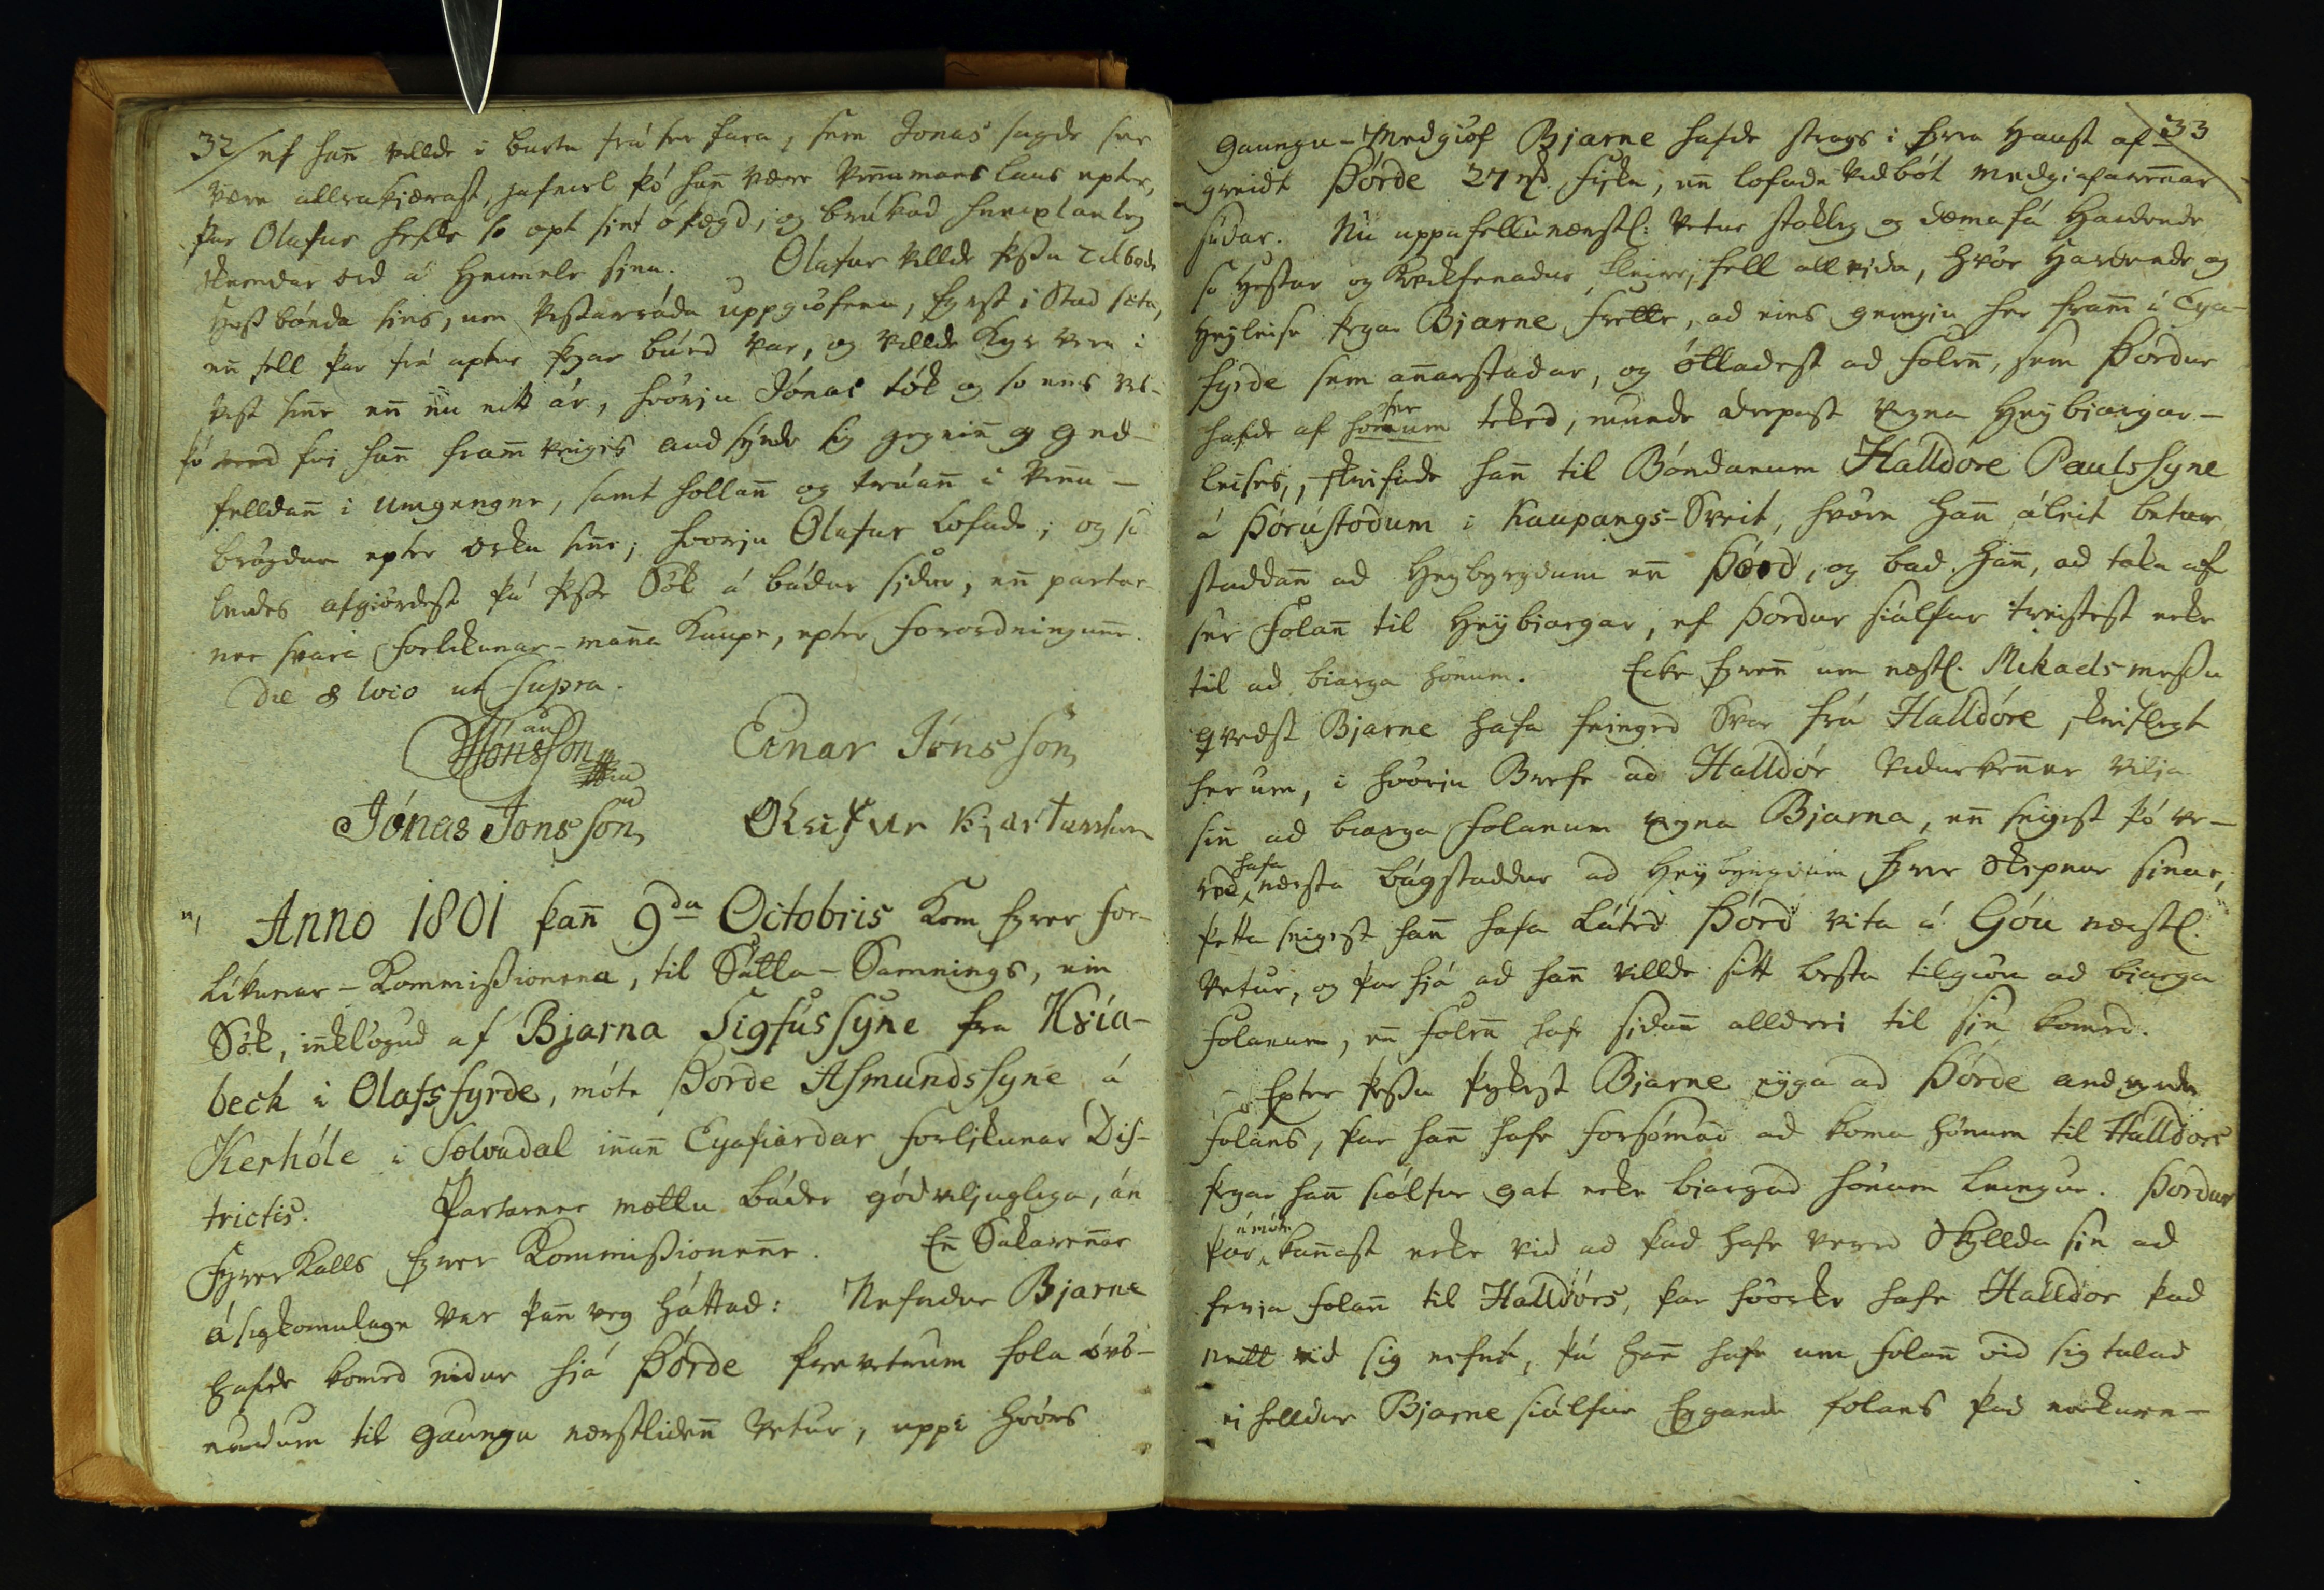 32/ ef hañ villde i burtu frá ser fara, sem Jonas sagde ser
være allrakjærast, jafnvel þó hañ være viñumanslaus epter,
þar Olafur hefde so opt sint óþægd, og brúkad
skemdar ord á Heimele sinu. Olafur villde þessu Tilbode
Husbónda sins, um Vistarráda uppgiöfena, fyrst i Stad játa,
en fell þar frá aptur þegar búed var, og villde kyr vera i
vist hiñe eñ nu eitt ár, hvörju Jónas tók og so eins vel
þó med þvi hañ framveigis aud synde sig gegniñ og ged-
felldañ i Umgengne, samt hollañ og trúañ i viñu-
brögdum epter orku siñe; hvorju Olafur lofade; og so
leidis afgiordest þá þesse Sök á bádar sidur, en partar
ner svara Forlikunar-maña Kaupe, epter Forordninguñe.
Die & loco ut supra.
HJónsson Einar Jónsson
Jónas Jonsson Olafur Kjartansson
Anno 1801 þañ 9da Octobris kom fyrer For-
likunar-Kommissionena, til Sátta-Samnings, ein
Sök, inklögud af Bjarna Sigfússyne fra Kvía-
beck i Olafsfyrde, móte Þorde Asmundssyne á
Kerhóle i Sölvadal iñañ Eyafiardar Forlikunar Dis-
trictis. Partarner mættu báder gódviljuglega, án
Fyrerkalls fyrer Kommissioneñe. Eñ Sakareñar
ásigkomulage var þañ veg háttad: Nefndur Bjarne
hafde komed nidur hjá Þórde þrevetrum fola óvö-
nudum til gaungu næstlideñ vetur, uppá hvörs
33
gaungu-Medgiöf Bjarne hafde strags i fyrra Haust af-
greidt Þórde 27 fiska, eñ lofade vidbót medgiafareñar
sidar. Nú uppafellu næstl: vetur stökleg og dæmafá Hardende
so Hestar og Kvikfenadur fleire, fell allvida, hvör Hardende og
Heyleise þegar Bjarne frette, ad eins geingju her fram i Eya-
fyrde sem añarstadar, og óttadest ad Foleñ, sem Þordur
hafde af hönum teked, munde drepast vegna Heybiargar-
leises, skrifade hañ til Bóndanum Halldóre Paulssyne
á Þórustödum i Kaupangs-Sveit, hvörn hañ áleit betur
staddañ ad Heybyrgdum eñ Þórd, og bad hañ, ad taka af
ser Folañ til Heybiargar, ef Þordur siálfur treistest ecke
til ad biarga hönum. Ecke fyreñ um næstl. Mikaels-messu
qvedst Bjarne hafa feinged Svar frá Halldóre, skriflegt
herum, i hvörju Brefe ad Halldór vidurkeñer vilja
siñ ad biarga Folanum vegna Bjarna, eñ seigist þó ve-
red hafa næsta bágstaddur ad Heybyrgdum fyrer Skepnur sinar,
þetta seigest hañ hafa láted Þórd vita á Góu næstl.
vetur, og þar hjá ad hañ villde sitt besta tilgiöra ad biarga
Folanum, eñ Foleñ hafe sidañ alldrei til sin komed.
Epter þessu þykest Bjarne eyga ad Þórde andvyrde
Folans, þar hañ hafe forsómad ad koma hönum til Halldórs
þegar hañ siálfur gat ecke biargad hönum leingur. Þordur
þar á móte kañast ecke vid ad þad hafe vered Skyllda sin ad
færa Folañ til Halldórs, þar hvorke hafe Halldór þad
neitt vid sig nefnt, þá hañ hafe um Folañ vid sig talad
ei helldur Bjarne siálfur Eygande Folans þad